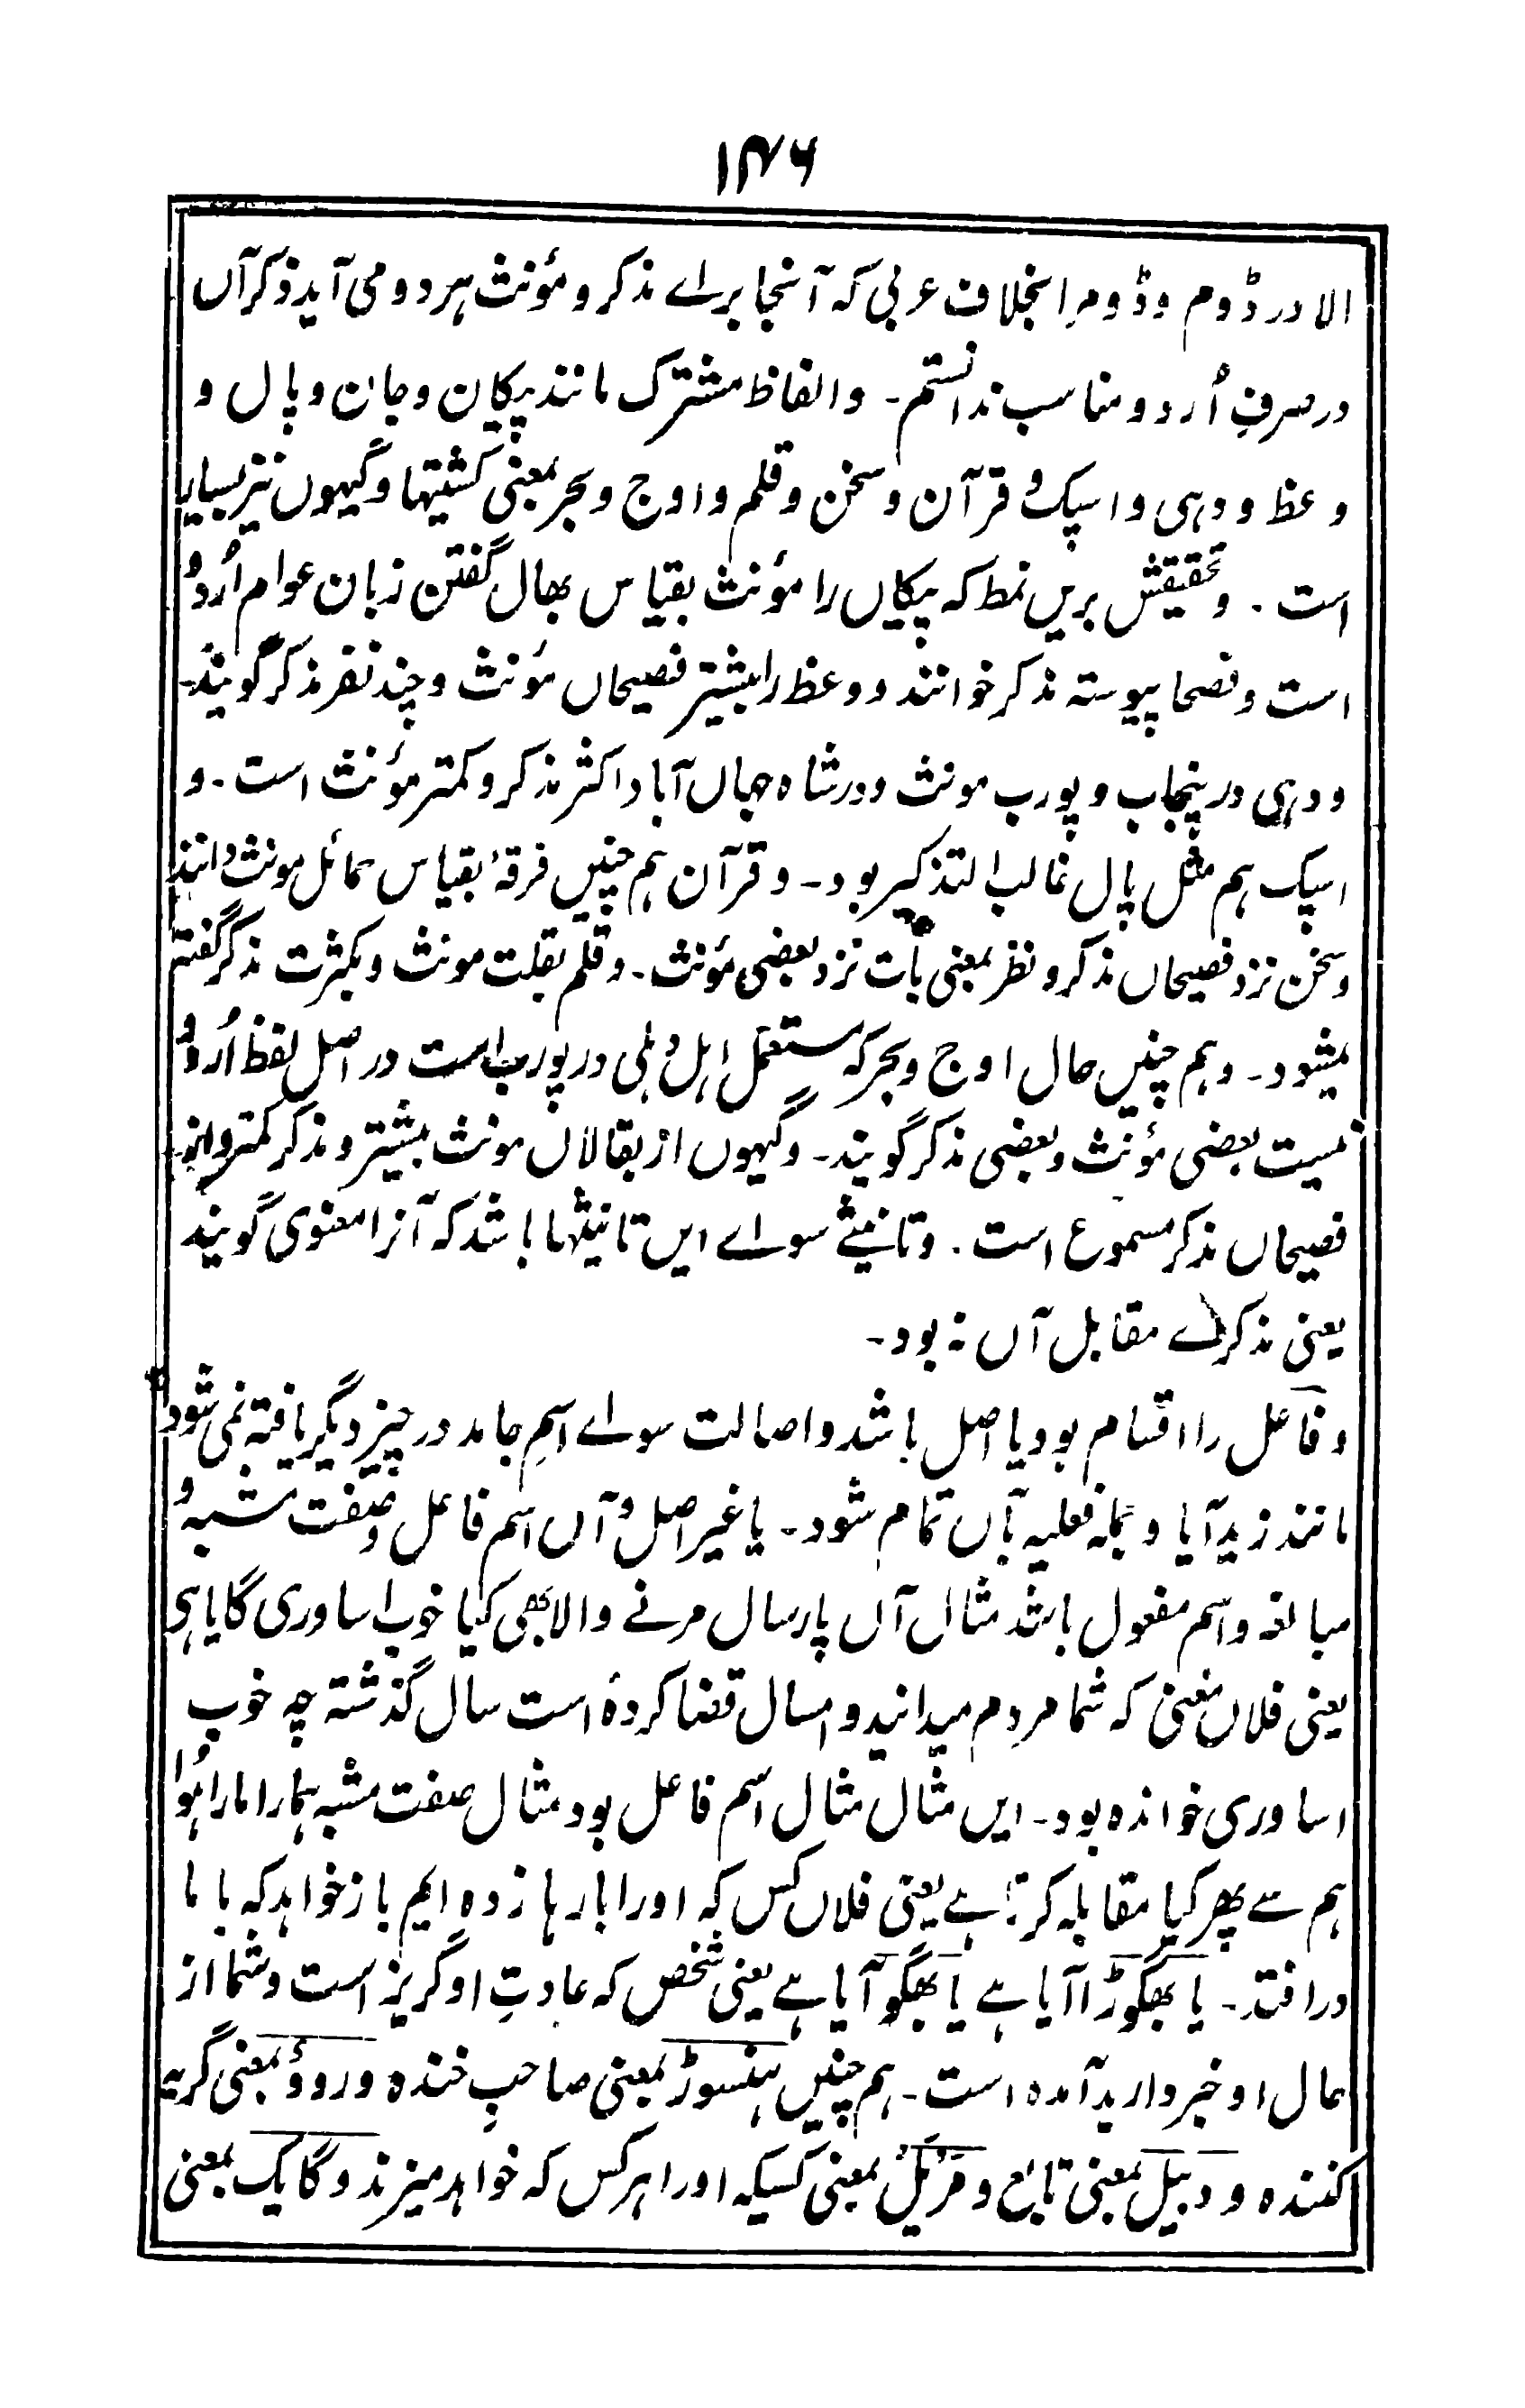 ۱۴۶
الا در ڈوم وڈومرا بخلاف عربی که آنجا برای مذکر و مؤنث هر دو می آید ذکر آں
در صرفِ اُردو مناسب ندانستم۔ والفاظ مشترک مانند پیکان وجان و پال و
وعظ و دہی و اسپک و قرآن وسخن وقلم و اوج و بحر بمعنی کشتیها وگیہوں نیز بسیار
است۔ وتحقیقش بریں نمط که پیکاں را مؤنث بقیاس بھال گفتن زبان عوام اُردو
است و فصحا پیوسته مذکر خوانند و وعظ را بیشتر فصیحاں مؤنث و چند نفر مذکر گویند۔
ودہی در پنجاب و پورب مونث و در شاہ جہاں آباد اکثر مذکر و کمتر مؤنث است۔ و
اسپک ہم مثل پال غالب التذکیر بود۔ و قرآن ہم چنیں فرقۂ بقیاس حمائل مونث دانند
وسخن نزد فصیحاں مذکر و نظر بمعنی بات نزد بعضی مؤنث۔ وقلم بقلت مونث و بکثرت مذکر گفته
میشود۔ وہم چنیں حال اوج و بحر که مستعمل اہل دہلی در پورب است در اصل لفظ اُردو
نیست بعضی مؤنث و بعضی مذکر گویند۔ وگیہوں از بقالاں مونث بیشتر و مذکر کمتر و از
فصیحاں مذکر مسموع است۔ و تانیثے سواے ایں تانیثہا باشد که آنرا معنوی گویند
یعنی مذکرے مقابل آں نہ بود۔
و فاعل را اقسام بود یا اصل باشد و اصالت سواے اسمِ جامد در چیز دیگر یافته نمی شود
مانند زید آیا و جمله فعلیه بآں تمام شود۔ یا غیر اصل و آں اسم فاعل و صفت مشبه و
مبالغه و اسم مفعول باشد مثال آں پارسال مرنے والا بھی کیا خوب اساوری گایا ہی
یعنی فلاں مغنی که شما مردم میدانید و امسال قضا کردۂ است سال گذشته چه خوب
اساوری خوانده بود۔ ایں مثال مثال اسم فاعل بود مثال صفت مشبه ہمارا مارا ہُوا
ہم سے پھر کیا مقابله کرتا ہے یعنی فلاں کس که اورا بارہا زده ایم باز خواہد که با ما
در افتد۔ یا بھگوڑا آیا ہے یا بھگو آیا ہے یعنی شخص که عادتِ او گریز است و شما از
حال او خبر دارید آمده است۔ ہم چنیں ہنسوڑ بمعنی صاحبِ خنده و روؤ بمعنی گریه
کننده و دبیل بمعنی تابع و مَریَل بمعنی کسیکه اورا ہر کس که خواہد میزند و گایک بمعنی